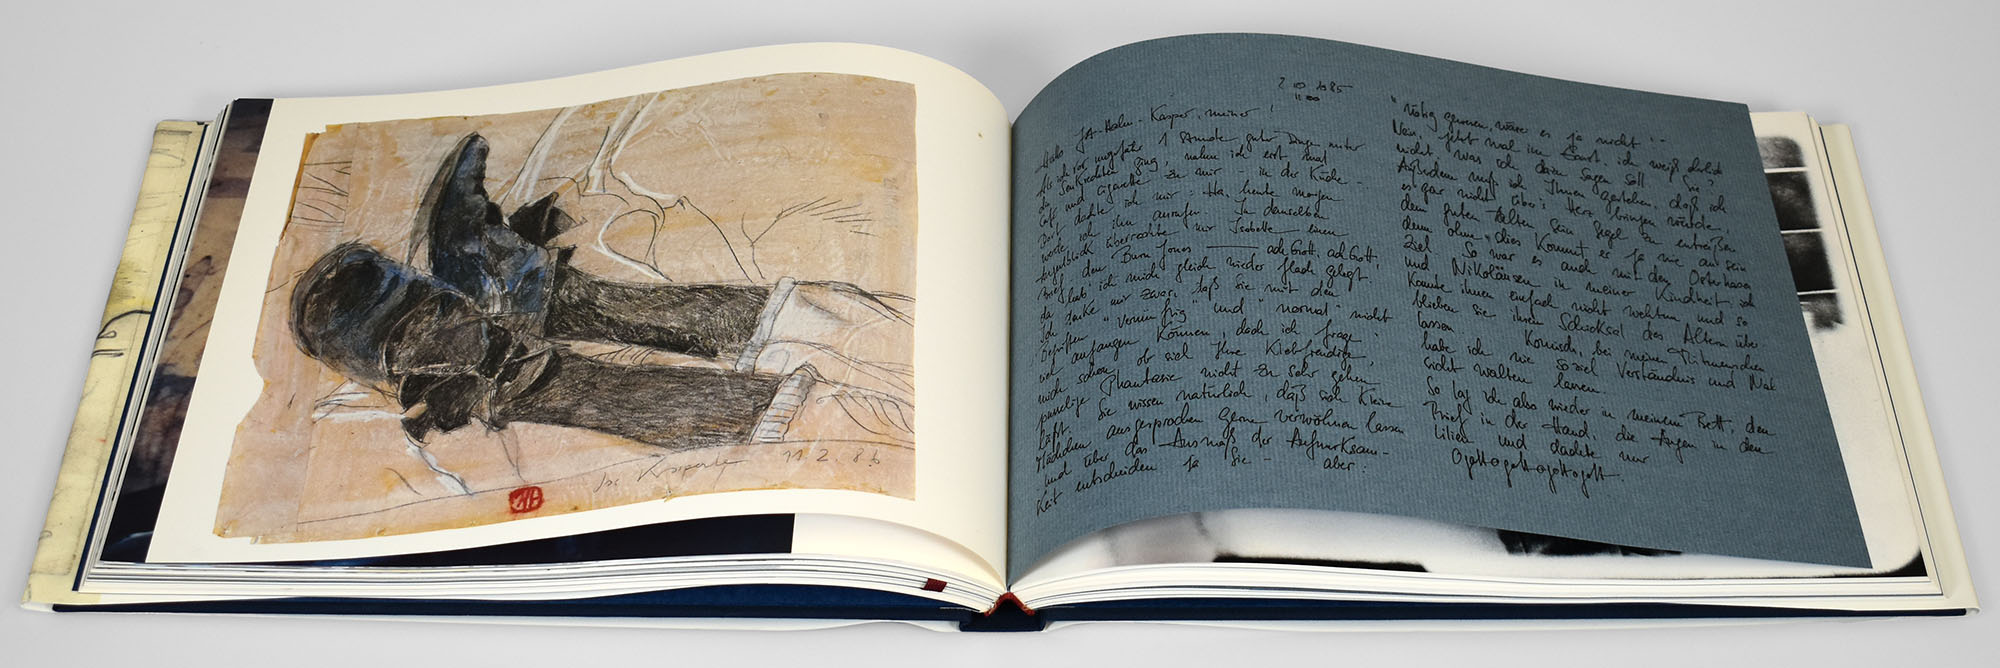 Jos Kasperle 11.2.86
2 10 1985
11 00
Hallo JA-Hahn-Kasper, meiner!
Als ich vor ungefähr 1 Stunde guter Dinge unter
die Senkrechten ging, nahm ich erst mal
Luft und Cigarette zu mir – in der Küche –
Dort dachte ich mir: Ha, heute morgen
werde ich ihn anrufen. In demselben
Augenblick überreichte mir Isabelle einen
Brief, den Burn Jones — ach Gott, ach Gott,
da hab' ich mich gleich wieder flach gelegt
Ich denke mir zwar, daß Sie mit den
Begriffen "vernünftig" und "normal" nicht
viel anfangen können, doch ich frage
mich schon, ob sich Ihre
Phantasie nicht zu sehr gehen
läßt. Sie wissen natürlich, daß sich kleine
Mädchen ausgesprochen gerne verwöhnen lassen
und über das Ausmaß der Aufmerksam-
keit entscheiden ja Sie – aber:
"nötig gewesen, wäre es ja nicht"! –
Nein, jetzt mal im Ernst, ich weiß
nicht was ich dazu sagen soll Sie?
Außerdem muß ich Ihnen gestehen, daß ich
es gar nicht über's Herz bringen würde,
dem guten Alten sein Segel zu entreißen
denn ohne dies kommt er ja nie an sein
Ziel. So war es auch mit den Osterhasen
und Nikoläusen in meiner Kindheit ich
konnte ihnen einfach nicht wehtun und so
blieben sie ihrem Schicksal des Alterns über-
lassen. Komisch, bei meinen
habe ich nie soviel Verständnis und
walten lassen.
So lag ich also wieder in meinem Bett, den
Brief in der Hand, die Augen in den
Lilien und dachte nur
Ogottogottogottogott.